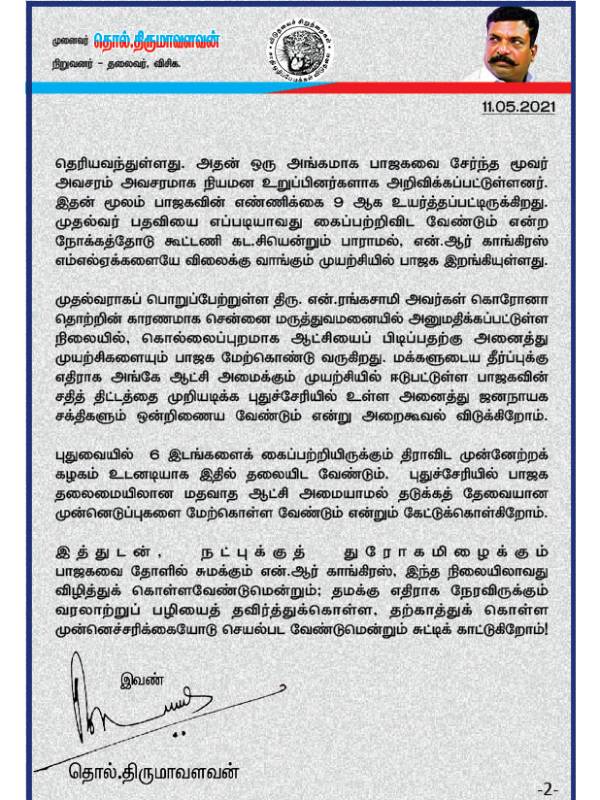 முனைவர் தொல்.திருமாவளவன்
நிறுவனர் - தலைவர், விசிக.
11.05.2021
தெரியவந்துள்ளது. அதன் ஒரு அங்கமாக பாஜகவை சேர்ந்த மூவர்
அவசரம் அவசரமாக நியமன உறுப்பினர்களாக அறிவிக்கப்பட்டுள்ளனர்.
இதன் மூலம் பாஜகவின் எண்ணிக்கை 9 ஆக உயர்த்தப்பட்டிருக்கிறது.
முதல்வர் பதவியை எப்படியாவது கைப்பற்றிவிட வேண்டும் என்ற
நோக்கத்தோடு கூட்டணி கட.சியென்றும் பாராமல், என்.ஆர் காங்கிரஸ்
எம்எல்ஏக்களையே விலைக்கு வாங்கும் முயற்சியில் பாஜக இறங்கியுள்ளது.
முதல்வராகப் பொறுப்பேற்றுள்ள திரு. என்.ரங்கசாமி அவர்கள் கொரோனா
தொற்றின் காரணமாக சென்னை மருத்துவமனையில் அனுமதிக்கப்பட்டுள்ள
நிலையில், கொல்லைப்புறமாக ஆட்சியைப் பிடிப்பதற்கு அனைத்து
முயற்சிகளையும் பாஜக மேற்கொண்டு வருகிறது. மக்களுடைய தீர்ப்புக்கு
எதிராக அங்கே ஆட்சி அமைக்கும் முயற்சியில் ஈடுபட்டுள்ள பாஜகவின்
சதித் திட்டத்தை முறியடிக்க புதுச்சேரியில் உள்ள அனைத்து ஜனநாயக
சக்திகளும் ஒன்றிணைய வேண்டும் என்று அறைகூவல் விடுக்கிறோம்.
புதுவையில் 6 இடங்களைக் கைப்பற்றியிருக்கும் திராவிட முன்னேற்றக்
கழகம் உடனடியாக இதில் தலையிட வேண்டும். புதுச்சேரியில் பாஜக
தலைமையிலான மதவாத ஆட்சி அமையாமல் தடுக்கத் தேவையான
முன்னெடுப்புகளை மேற்கொள்ள வேண்டும் என்றும் கேட்டுக்கொள்கிறோம்.
இத்துடன், நட்புக்குத் துரோகமிழைக்கும்
பாஜகவை தோளில் சுமக்கும் என்.ஆர் காங்கிரஸ், இந்த நிலையிலாவது
விழித்துக் கொள்ளவேண்டுமென்றும்; தமக்கு எதிராக நேரவிருக்கும்
வரலாற்றுப் பழியைத் தவிர்த்துக்கொள்ள, தற்காத்துக் கொள்ள
முன்னெச்சரிக்கையோடு செயல்பட வேண்டுமென்றும் சுட்டிக் காட்டுகிறோம்!
இவண்
தொல்.திருமாவளவன்
-2-